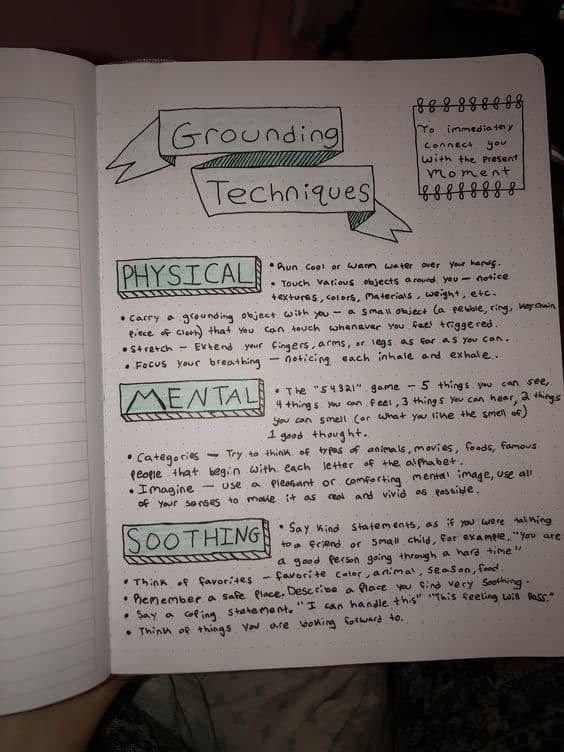 Grounding
Techniques
To immediately
connect you
with the present
moment
PHYSICAL
• Run cool or warm water over your hands.
• Touch various objects around you — notice
textures, colors, materials, weight, etc.
• Carry a grounding object with you — a small object (a pebble, ring, keychain
piece of cloth) that you can touch whenever you feel triggered.
• Stretch — Extend your fingers, arms, or legs as far as you can.
• Focus your breathing — noticing each inhale and exhale.
MENTAL
• The "54321" game — 5 things you can see,
4 things you can feel, 3 things you can hear, 2 things
you can smell (or what you like the smell of)
1 good thought.
• Categories — Try to think of types of animals, movies, foods, famous
people that begin with each letter of the alphabet.
• Imagine — use a pleasant or comforting mental image, use all
of your senses to make it as real and vivid as possible.
SOOTHING
• Say kind statements, as if you were talking
to a friend or small child, for example, "You are
a good person going through a hard time"
• Think of favorites — favorite color, animal, season, food.
• Remember a safe place. Describe a place you find very soothing.
• Say a coping statement. "I can handle this" "This feeling will pass."
• Think of things you are looking forward to.